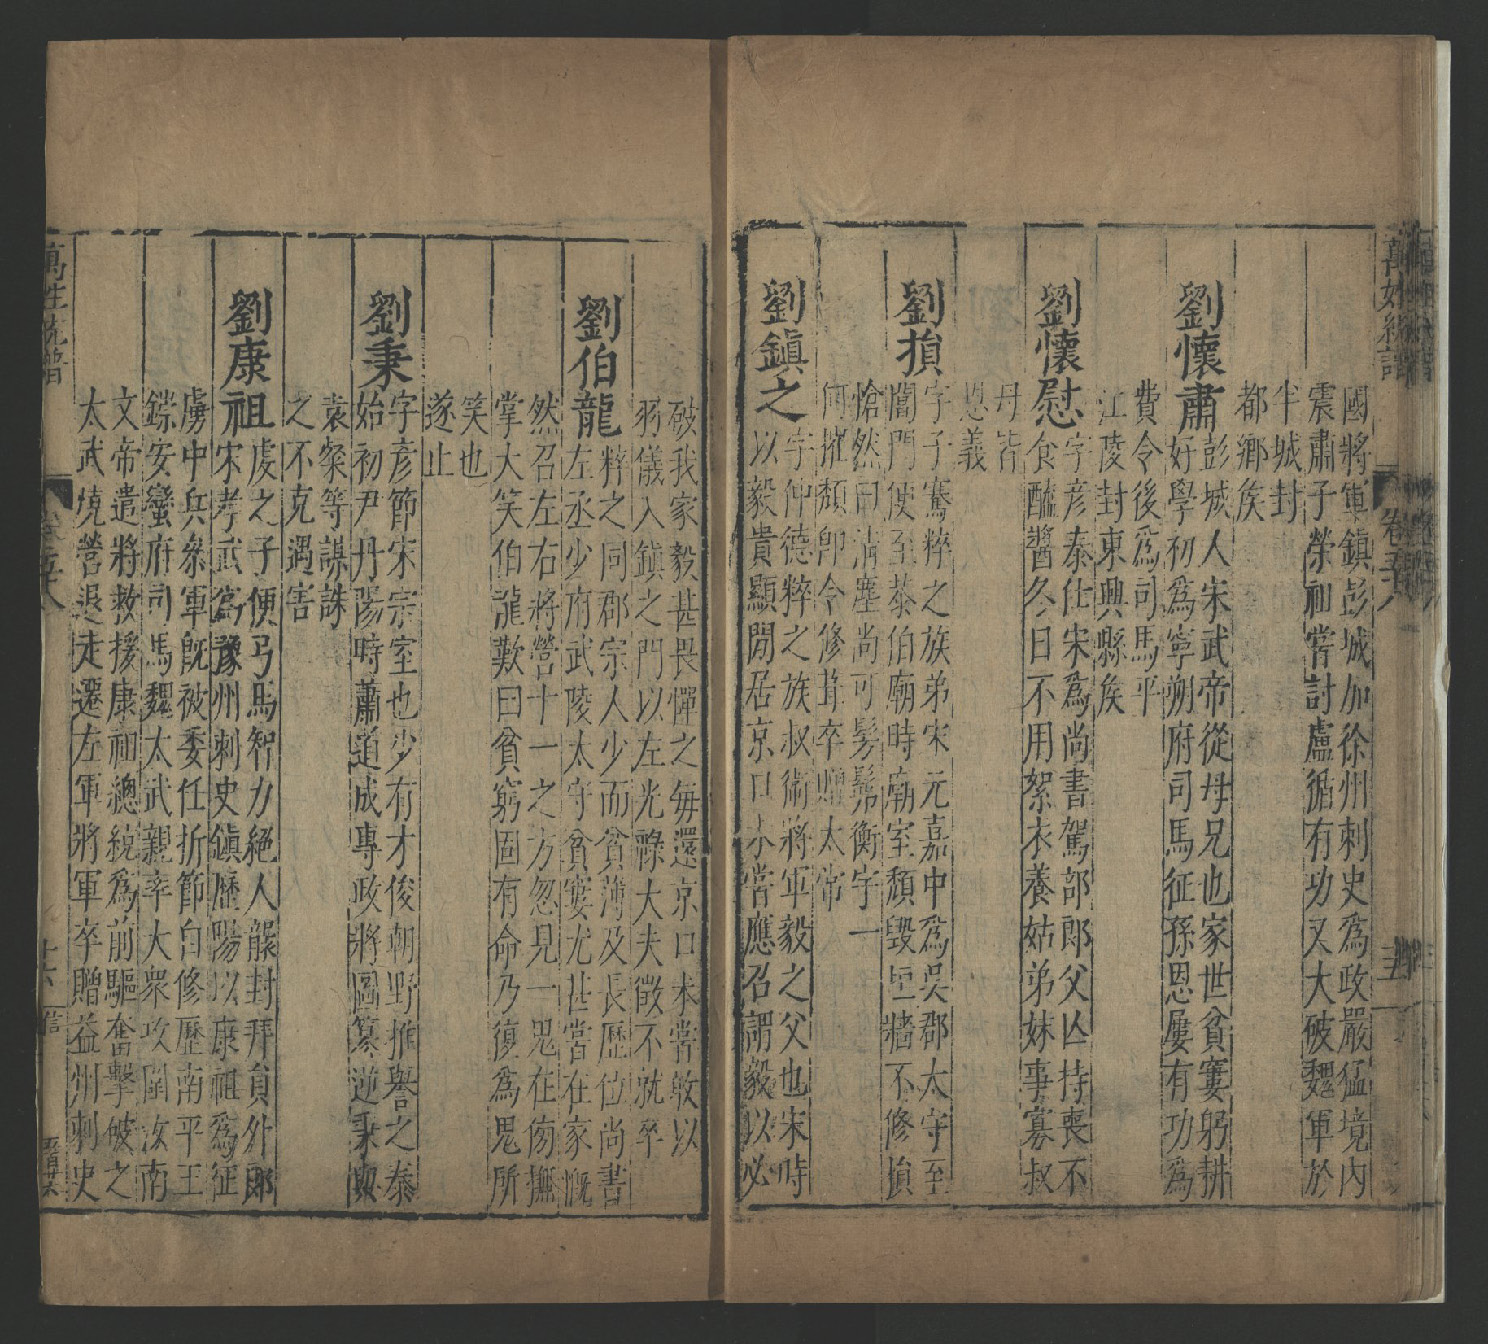 國將軍鎮彭城加徐州刺史為政嚴猛境內
震肅子榮祖嘗討盧循有功又大破魏軍於
半城封
都鄉侯
劉懷肅
彭城人宋武帝從母兄也家世貧窶躬耕
好學初為寧朔府司馬征孫恩屢有功為
費令後為司馬平
江陵封東興縣侯
劉懷慰
字彦泰仕宋為尚書駕部郎父亾持喪不
食醢醬冬日不用絮衣養姑弟妹事寡叔
母皆
恩義
劉損
字子騫粹之族弟宋元嘉中為吳郡太守至
閶門便至泰伯廟時廟室頹毀垣牆不修損
愴然曰清塵尚可髣髴衡宇一
何摧頹卽令修葺卒贈太常
劉鎮之
字仲德粹之族叔衛將軍毅之父也宋時
以毅貴顯閒居京口未嘗應召謂毅以必
破我家毅甚畏憚之每還京口未嘗敢以
羽儀入鎮之門以左光祿大夫徵不就卒
劉伯龍
粹之同郡宗人少而貧薄及長歷位尚書
左丞少府武陵太守貧窶尤甚嘗在家慨
然召左右將營十一之方忽見一鬼在傍撫
掌大笑伯龍歎曰貧窮固有命乃復為鬼所
笑也
遂止
劉秉
字彦節宋宗室也少有才俊朝野推譽之泰
始初尹丹陽時蕭道成專政將圖簒逆秉與
袁粲等謀誅
之不克遇害
劉康祖
虔之子便弓馬智力絕人襲封拜員外郎
宋孝武為豫州刺史鎮歷陽以康祖為征
虜中兵叅軍旣被委任折節自修歷南平王
鑠安蠻府司馬魏太武親率大衆攻圍汝南
文帝遣將救援康祖總統為前驅奮擊破之
太武燒營退走遷左軍將軍卒贈益州刺史
萬姓統譜
十六